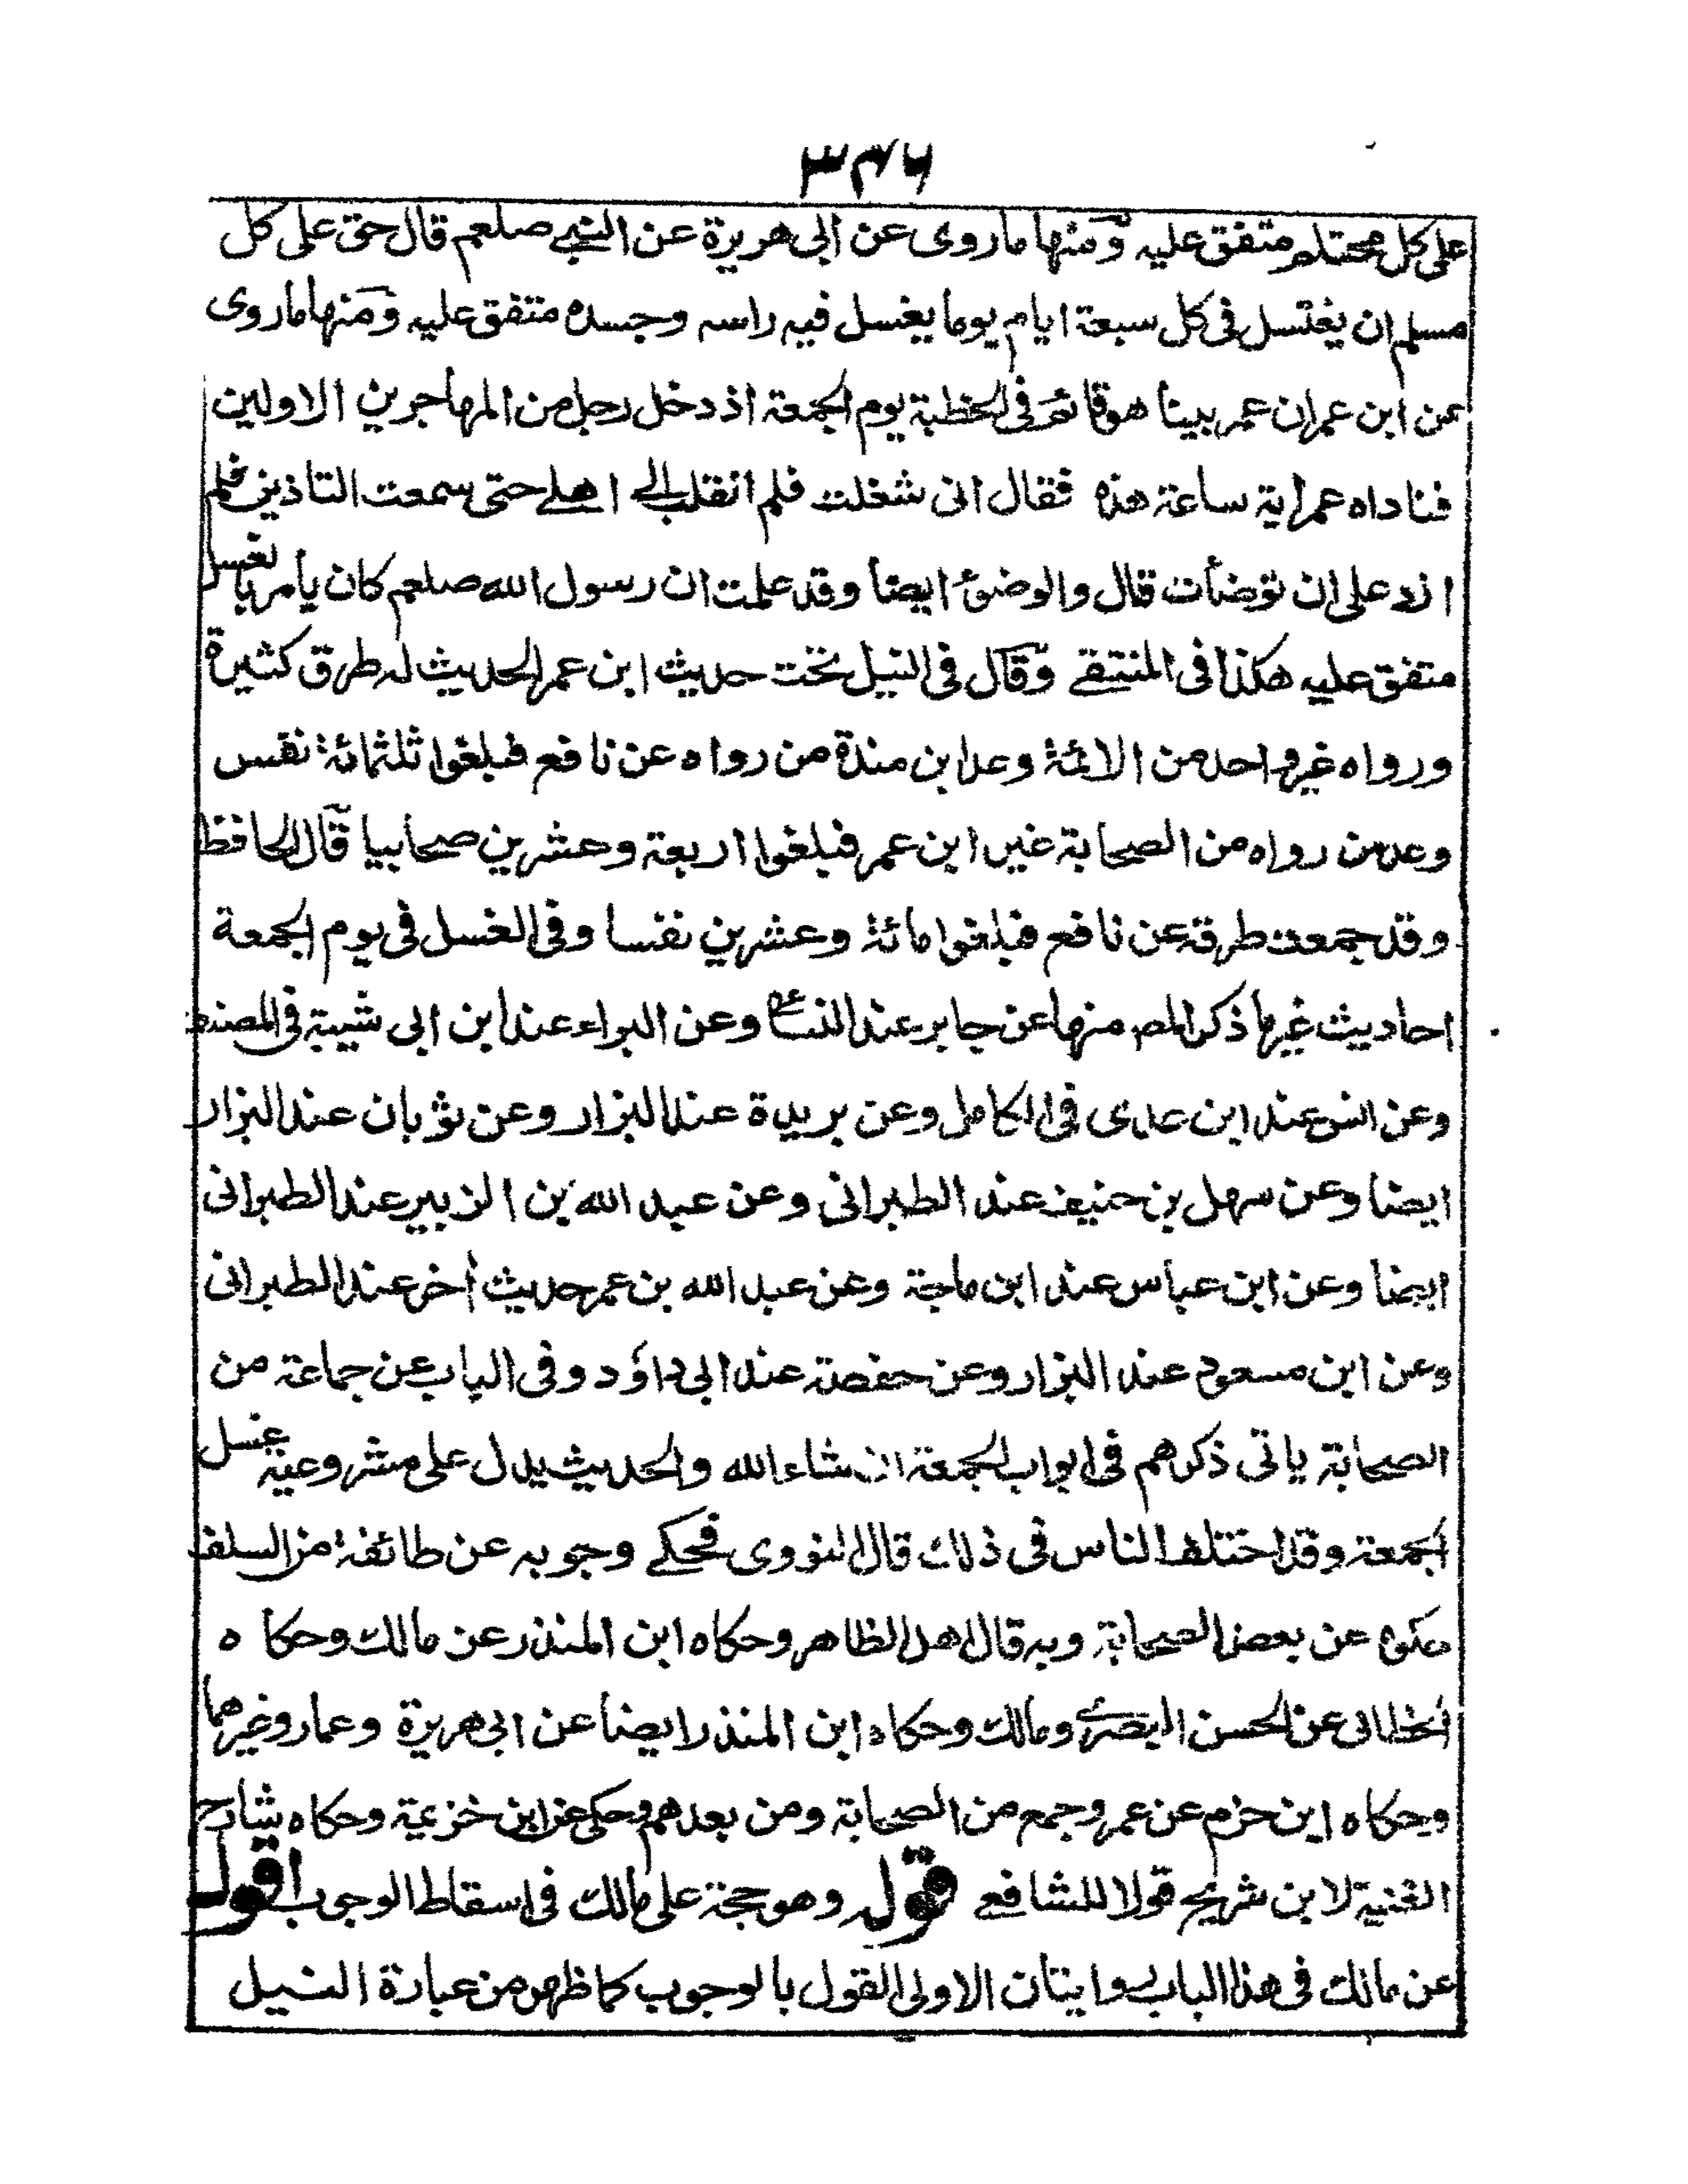 ٣٣٦
على كل محتلم متفق عليه ومنها ما روى عن ابى هريرة عن النبي صلعم قال حق على كل
مسلم ان يغتسل فى كل سبعة ايام يوما يغسل فيه راسه وجسده متفق عليه ومنها ما روى
عن ابن عمر ان عمر بينا هو قائم فى الخطبة يوم الجمعة اذ دخل رجل من المهاجرين الاولين
فناداه عمر اية ساعة هذه فقال انى شغلت فلم انقلب الى اهلى حتى سمعت التاذين فلم
ازد على ان توضأت قال والوضوء ايضا وقد علمت ان رسول الله صلعم كان يأمر بالغسل
متفق عليه هكذا فى المنتقى وقال فى النيل تحت حديث ابن عمر الحديث له طرق كثيرة
ورواه غير واحد من الائمة وعد ابن مندة من رواه عن نافع فبلغوا ثلثمائة نفس
وعد من رواه من الصحابة غير ابن عمر فبلغوا اربعة وعشرين صحابيا قال الحافظ
وقد جمعت طرقه عن نافع فبلغوا مائة وعشرين نفسا وفى الغسل فى يوم الجمعة
احاديث غير ما ذكر المص منها عن جابر عند النسائى وعن البراء عند ابن ابى شيبة فى المصنف
وعن انس عند ابن عدى فى الكامل وعن بريدة عند البزار وعن ثوبان عند البزار
ايضا وعن سهل بن حنيف عند الطبرانى وعن عبد الله بن الزبير عند الطبرانى
ايضا وعن ابن عباس عند ابن ماجة وعن عبد الله بن عمر حديث أخر عند الطبرانى
وعن ابن مسعود عند البزار وعن حفصة عند ابى داؤد وفى الباب عن جماعة من
الصحابة ياتى ذكرهم فى ابواب الجمعة ان شاء الله والحديث يدل على مشروعية غسل
الجمعة وقد اختلف الناس فى ذلك قال النووى فحكى وجوبه عن طائفة من السلف
حكوه عن بعض الصحابة وبه قال اهل الظاهر وحكاه ابن المنذر عن مالك وحكاه
الخطابى عن الحسن البصرى ومالك وحكاه ابن المنذر ايضا عن ابى هريرة وعمار وغيرهما
وحكاه ابن حزم عن عمر وجمع من الصحابة ومن بعدهم وحكى عن ابن خزيمة وحكاه شارح
الغنية لابن شريح قولا للشافعى قوله وهو حجة على مالك فى اسقاط الوجوب اقول
عن مالك فى هذا الباب روايتان الاولى القول بالوجوب كما ظهر من عبارة النيل